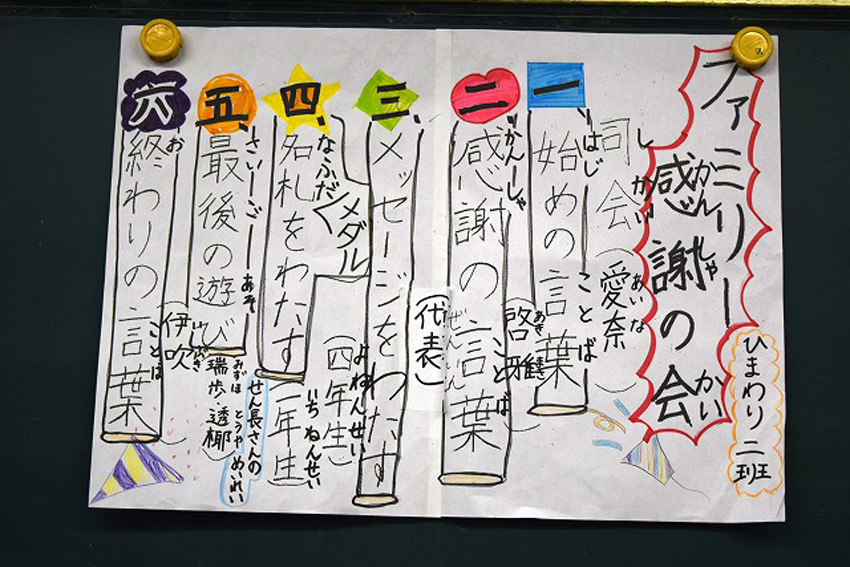 ファミリー
感謝の会
かんしゃ
かい
ひまわり二班
司会(愛奈)
しかい
あいな
一、始めの言葉
はじ
ことば
啓雅
あき
二、感謝の言葉
かんしゃ
ことば
(代表)
三、メッセージをわたす
(四年生)
よねんせい
メダル
四、名札をわたす
なふだ
二年生
いちねんせい
五、最後の遊び
さいご
あそ
瑞歩・透椰
みずほ とうや
せん長さんの
めいれい
六、終わりの言葉
お
ことば
(伊吹)
いぶき